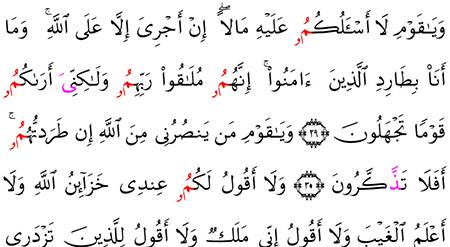 وَيَٰقَوْمِ لَا أَسْـَٔلُكُمُۥ عَلَيْهِ مَالًاۖ إِنْ أَجْرِىَ إِلَّا عَلَى ٱللَّهِۚ وَمَا
أَنَا۠ بِطَارِدِ ٱلَّذِينَ ءَامَنُوا۟ۚ إِنَّهُمُۥ مُلَٰقُوا۟ رَبِّهِمُۥ وَلَٰكِنِّىَ أَرَىٰكُمُۥ
قَوْمًا تَجْهَلُونَ ٢٩ وَيَٰقَوْمِ مَن يَنصُرُنِى مِنَ ٱللَّهِ إِن طَرَدتُّهُمُۥۚ
أَفَلَا تَذَّكَّرُونَ ٣٠ وَلَا أَقُولُ لَكُمُۥ عِندِى خَزَآئِنُ ٱللَّهِ وَلَا
أَعْلَمُ ٱلْغَيْبَ وَلَا أَقُولُ إِنِّى مَلَكٌ وَلَا أَقُولُ لِلَّذِينَ تَزْدَرِى